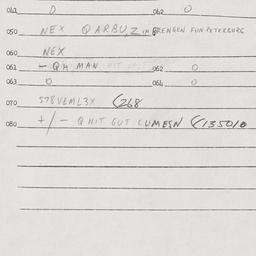 041 0 042 0
050 NEX QARBUZ IM BRENGEN FUN PETERBURG
060 NEX
061 - QH MAN 062 0
063 0 064 0
070 578VEML3X (268
080 +/- Q NIT GUT LUMESN (135010